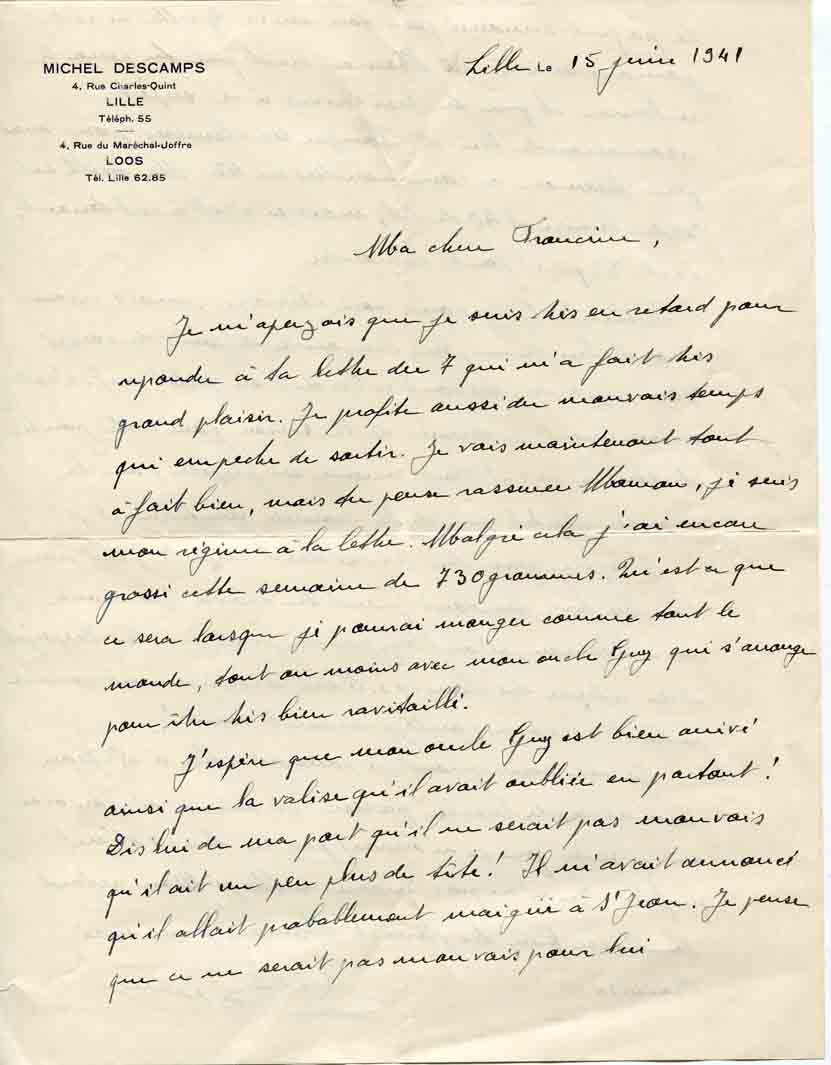 MICHEL DESCAMPS
4, Rue Charles-Quint
LILLE
Téléph. 55
4, Rue du Maréchal-Joffre
LOOS
Tél. Lille 62.85
Lille Le 15 juin 1941
Ma chère Francine,
Je m'aperçois que je suis très en retard pour
répondre à ta lettre du 7 qui m'a fait très
grand plaisir. Je profite aussi du mauvais temps
qui empeche de sortir. Je vais maintenant tout
à fait bien, mais tu peux rassurer Maman, je suis
mon régime à la lettre. Malgré cela j'ai encore
grossi cette semaine de 730 grammes. Qu'est ce que
ce sera lorsque je pourrai manger comme tout le
monde, tout au moins avec mon oncle Guy qui s'arrange
pour être très bien ravitaillé.
J'espère que mon oncle Guy est bien arrivé
ainsi que la valise qu'il avait oubliée en partant!
Dis lui de ma part qu'il ne serait pas mauvais
qu'il ait un peu plus de tête! Il m'avait annoncé
qu'il allait probablement maigrir à St Jean. Je pense
que ce ne serait pas mauvais pour lui